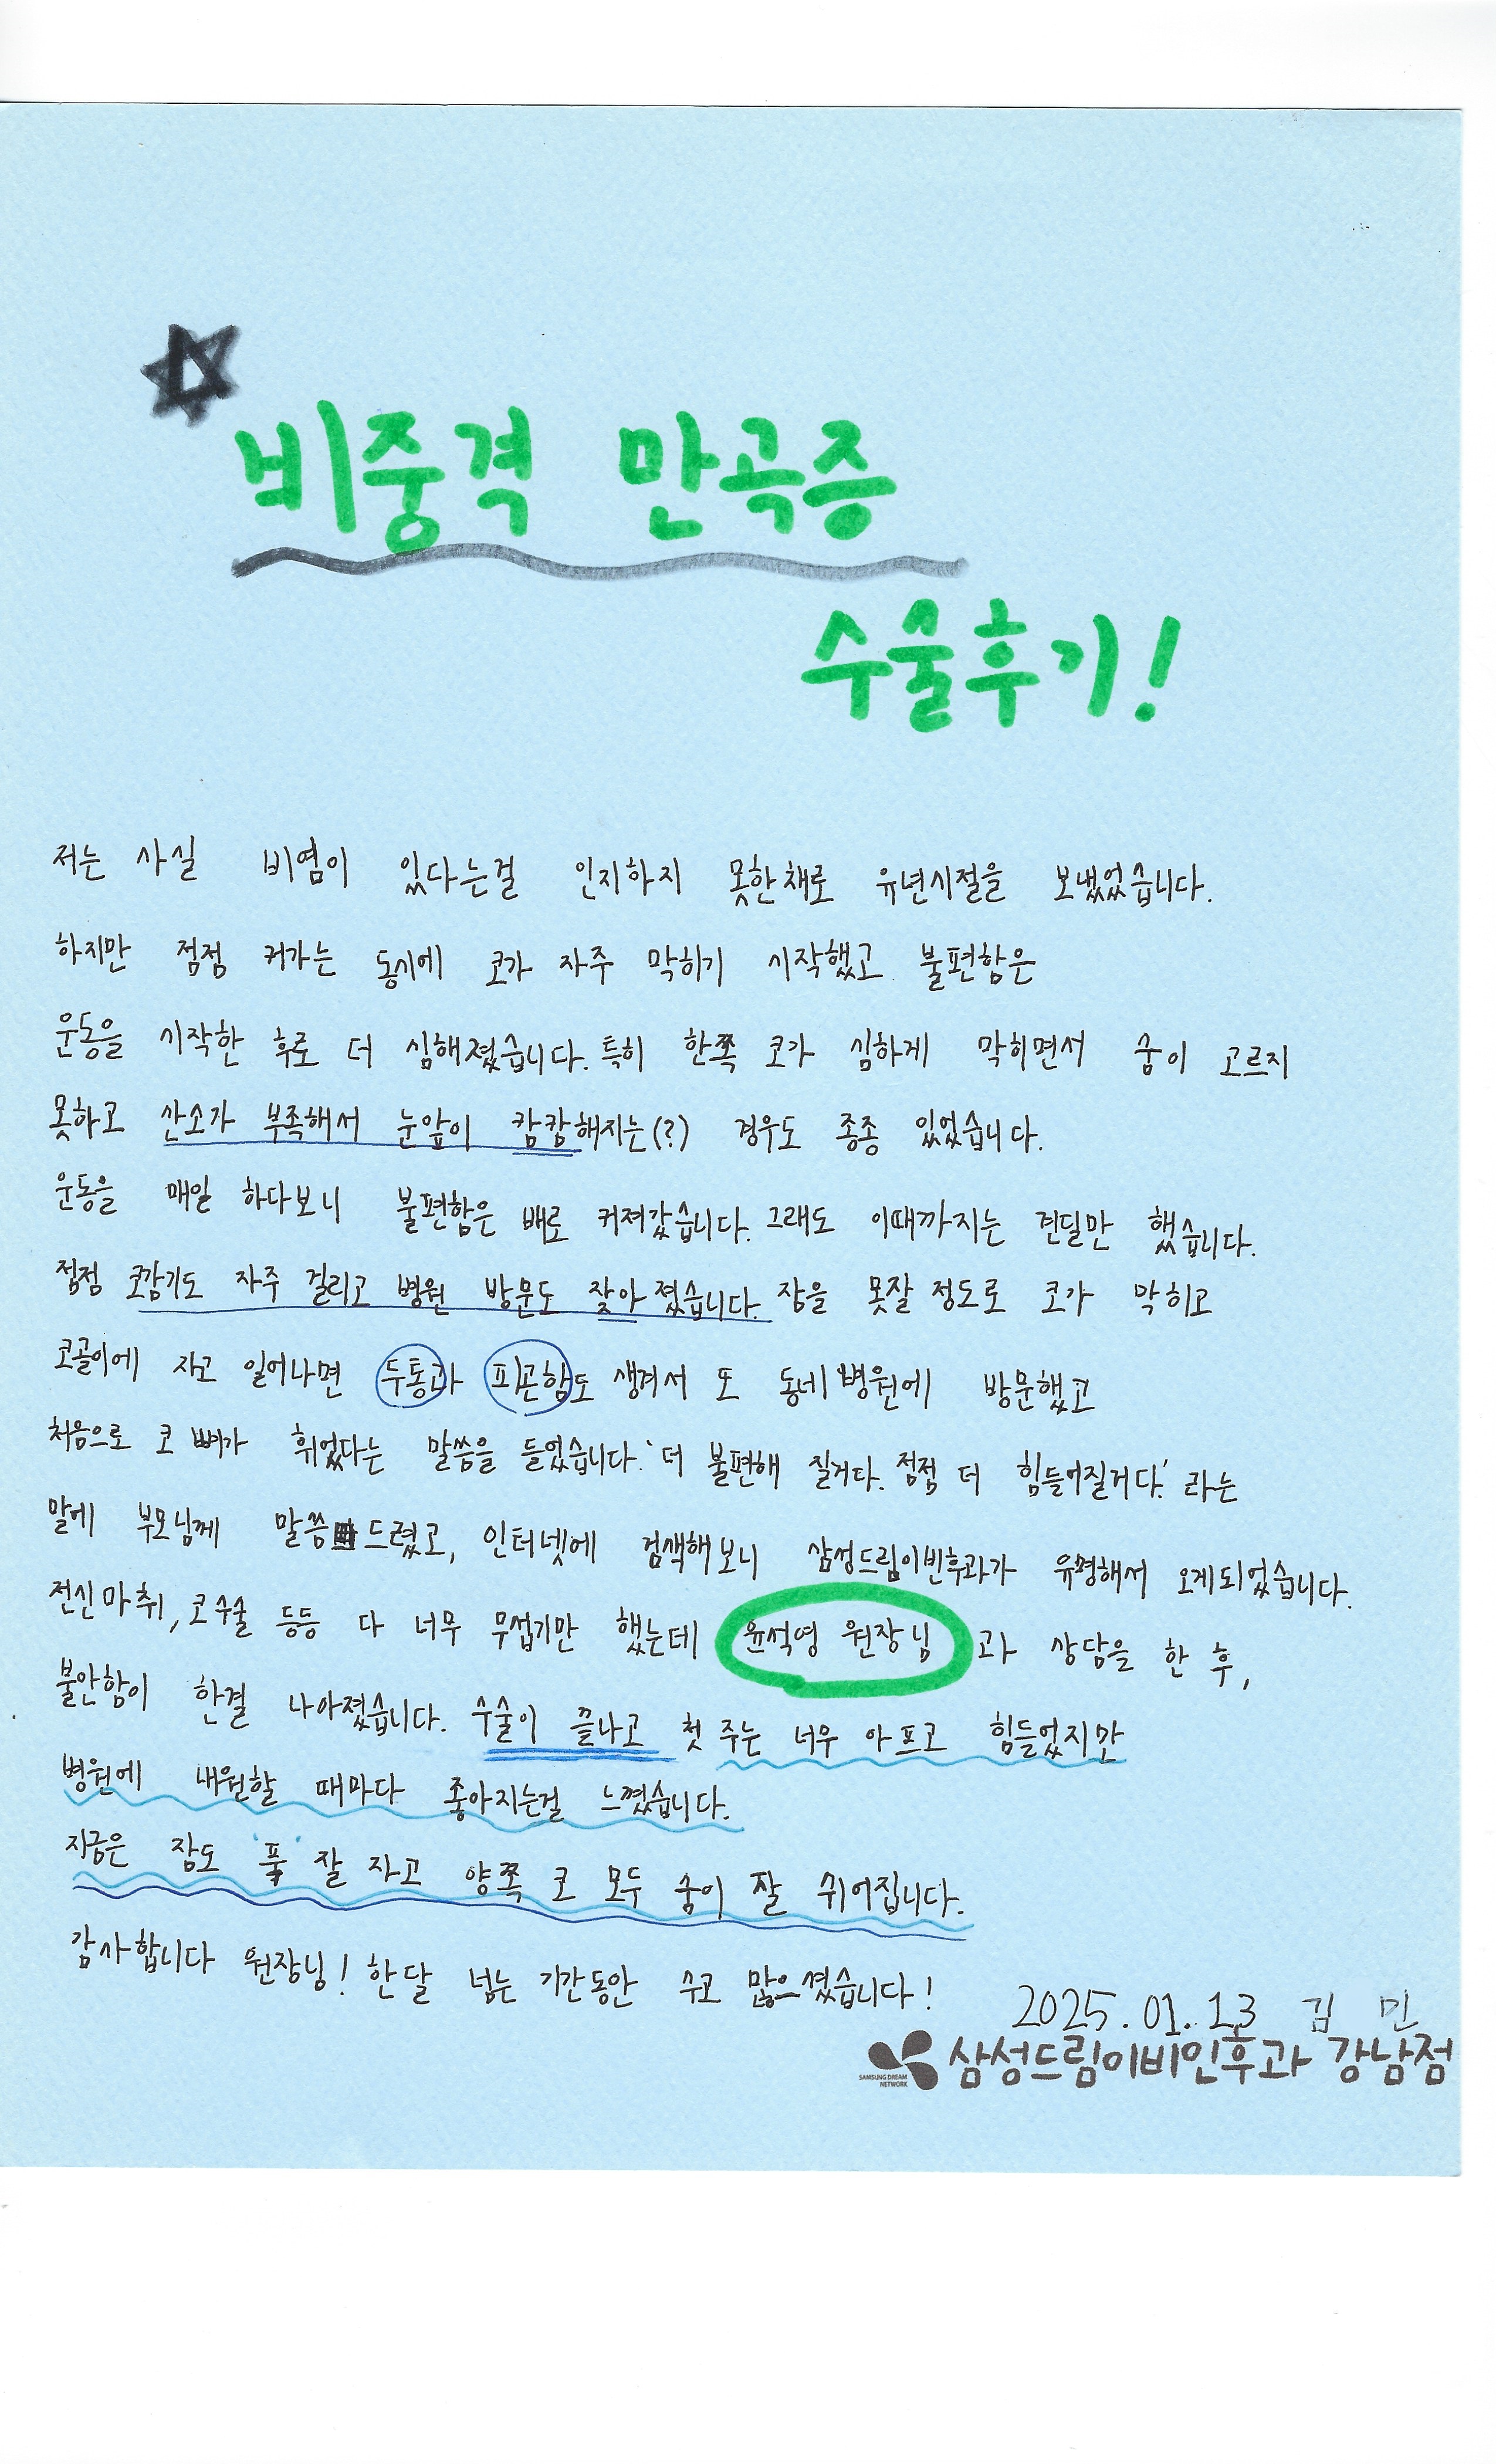 비중격 만곡증
수술후기!
저는 사실 비염이 있다는걸 인지하지 못한채로 유년시절을 보냈었습니다.
하지만 점점 커가는 동시에 코가 자주 막히기 시작했고 불편함은
운동을 시작한 후로 더 심해졌습니다. 특히 한쪽 코가 심하게 막히면서 숨이 고르지
못하고 산소가 부족해서 눈앞이 캄캄해지는(?) 경우도 종종 있었습니다.
운동을 매일 하다보니 불편함은 배로 커져갔습니다. 그래도 이때까지는 견딜만 했습니다.
점점 코감기도 자주 걸리고 병원 방문도 잦아졌습니다. 잠을 못잘 정도로 코가 막히고
코골이에 자고 일어나면 두통과 피곤함도 생겨서 또 동네병원에 방문했고
처음으로 코 뼈가 휘었다는 말씀을 들었습니다. '더 불편해 질거다. 점점 더 힘들어질거다.' 라는
말에 부모님께 말씀 드렸고, 인터넷에 검색해보니 삼성드림이빈후과가 유명해서 오게되었습니다.
전신마취, 코수술 등등 다 너무 무섭기만 했는데 윤석영 원장님 과 상담을 한 후,
불안함이 한결 나아졌습니다. 수술이 끝나고 첫 주는 너무 아프고 힘들었지만
병원에 내원할 때마다 좋아지는걸 느꼈습니다.
지금은 잠도 '푹' 잘 자고 양쪽 코 모두 숨이 잘 쉬어집니다.
감사합니다 원장님! 한달 넘는 기간동안 수고 많으셨습니다!
2025.01.13 김 민
SAMSUNG DREAM NETWORK 삼성드림이비인후과 강남점